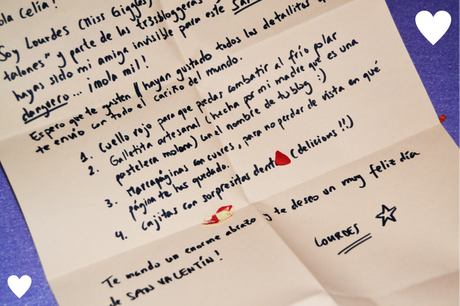 ola Celia!
Soy Lourdes (Miss Giggles
talones" y parte de las tr3sbloggeras
hayas sido mi amiga invisible para este SAN
danguero... ¡mola mil!
Espero que te gusten / hayan gustado todos los detallitos q
te envío con todo el cariño del mundo.
1. Cuello rojo para que puedas combatir al frío polar
2. Galletita artesanal (hecha por mi madre que es una
pastelera molona) con el nombre de tu blog :)
3. Marcapáginas con cuores, para no perder de vista en qué
página te has quedado.
4. Cajitas con sorpresitas dent (delicious!!)
Te mando un enorme abrazo y te deseo un muy feliz día
de SAN VALENTÍN!
LOURDES